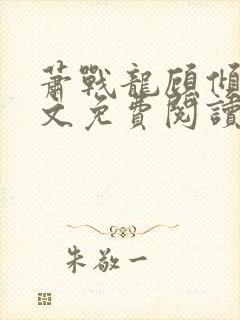 蕭戰龍顧傾
文免費閱讀
朱敬一